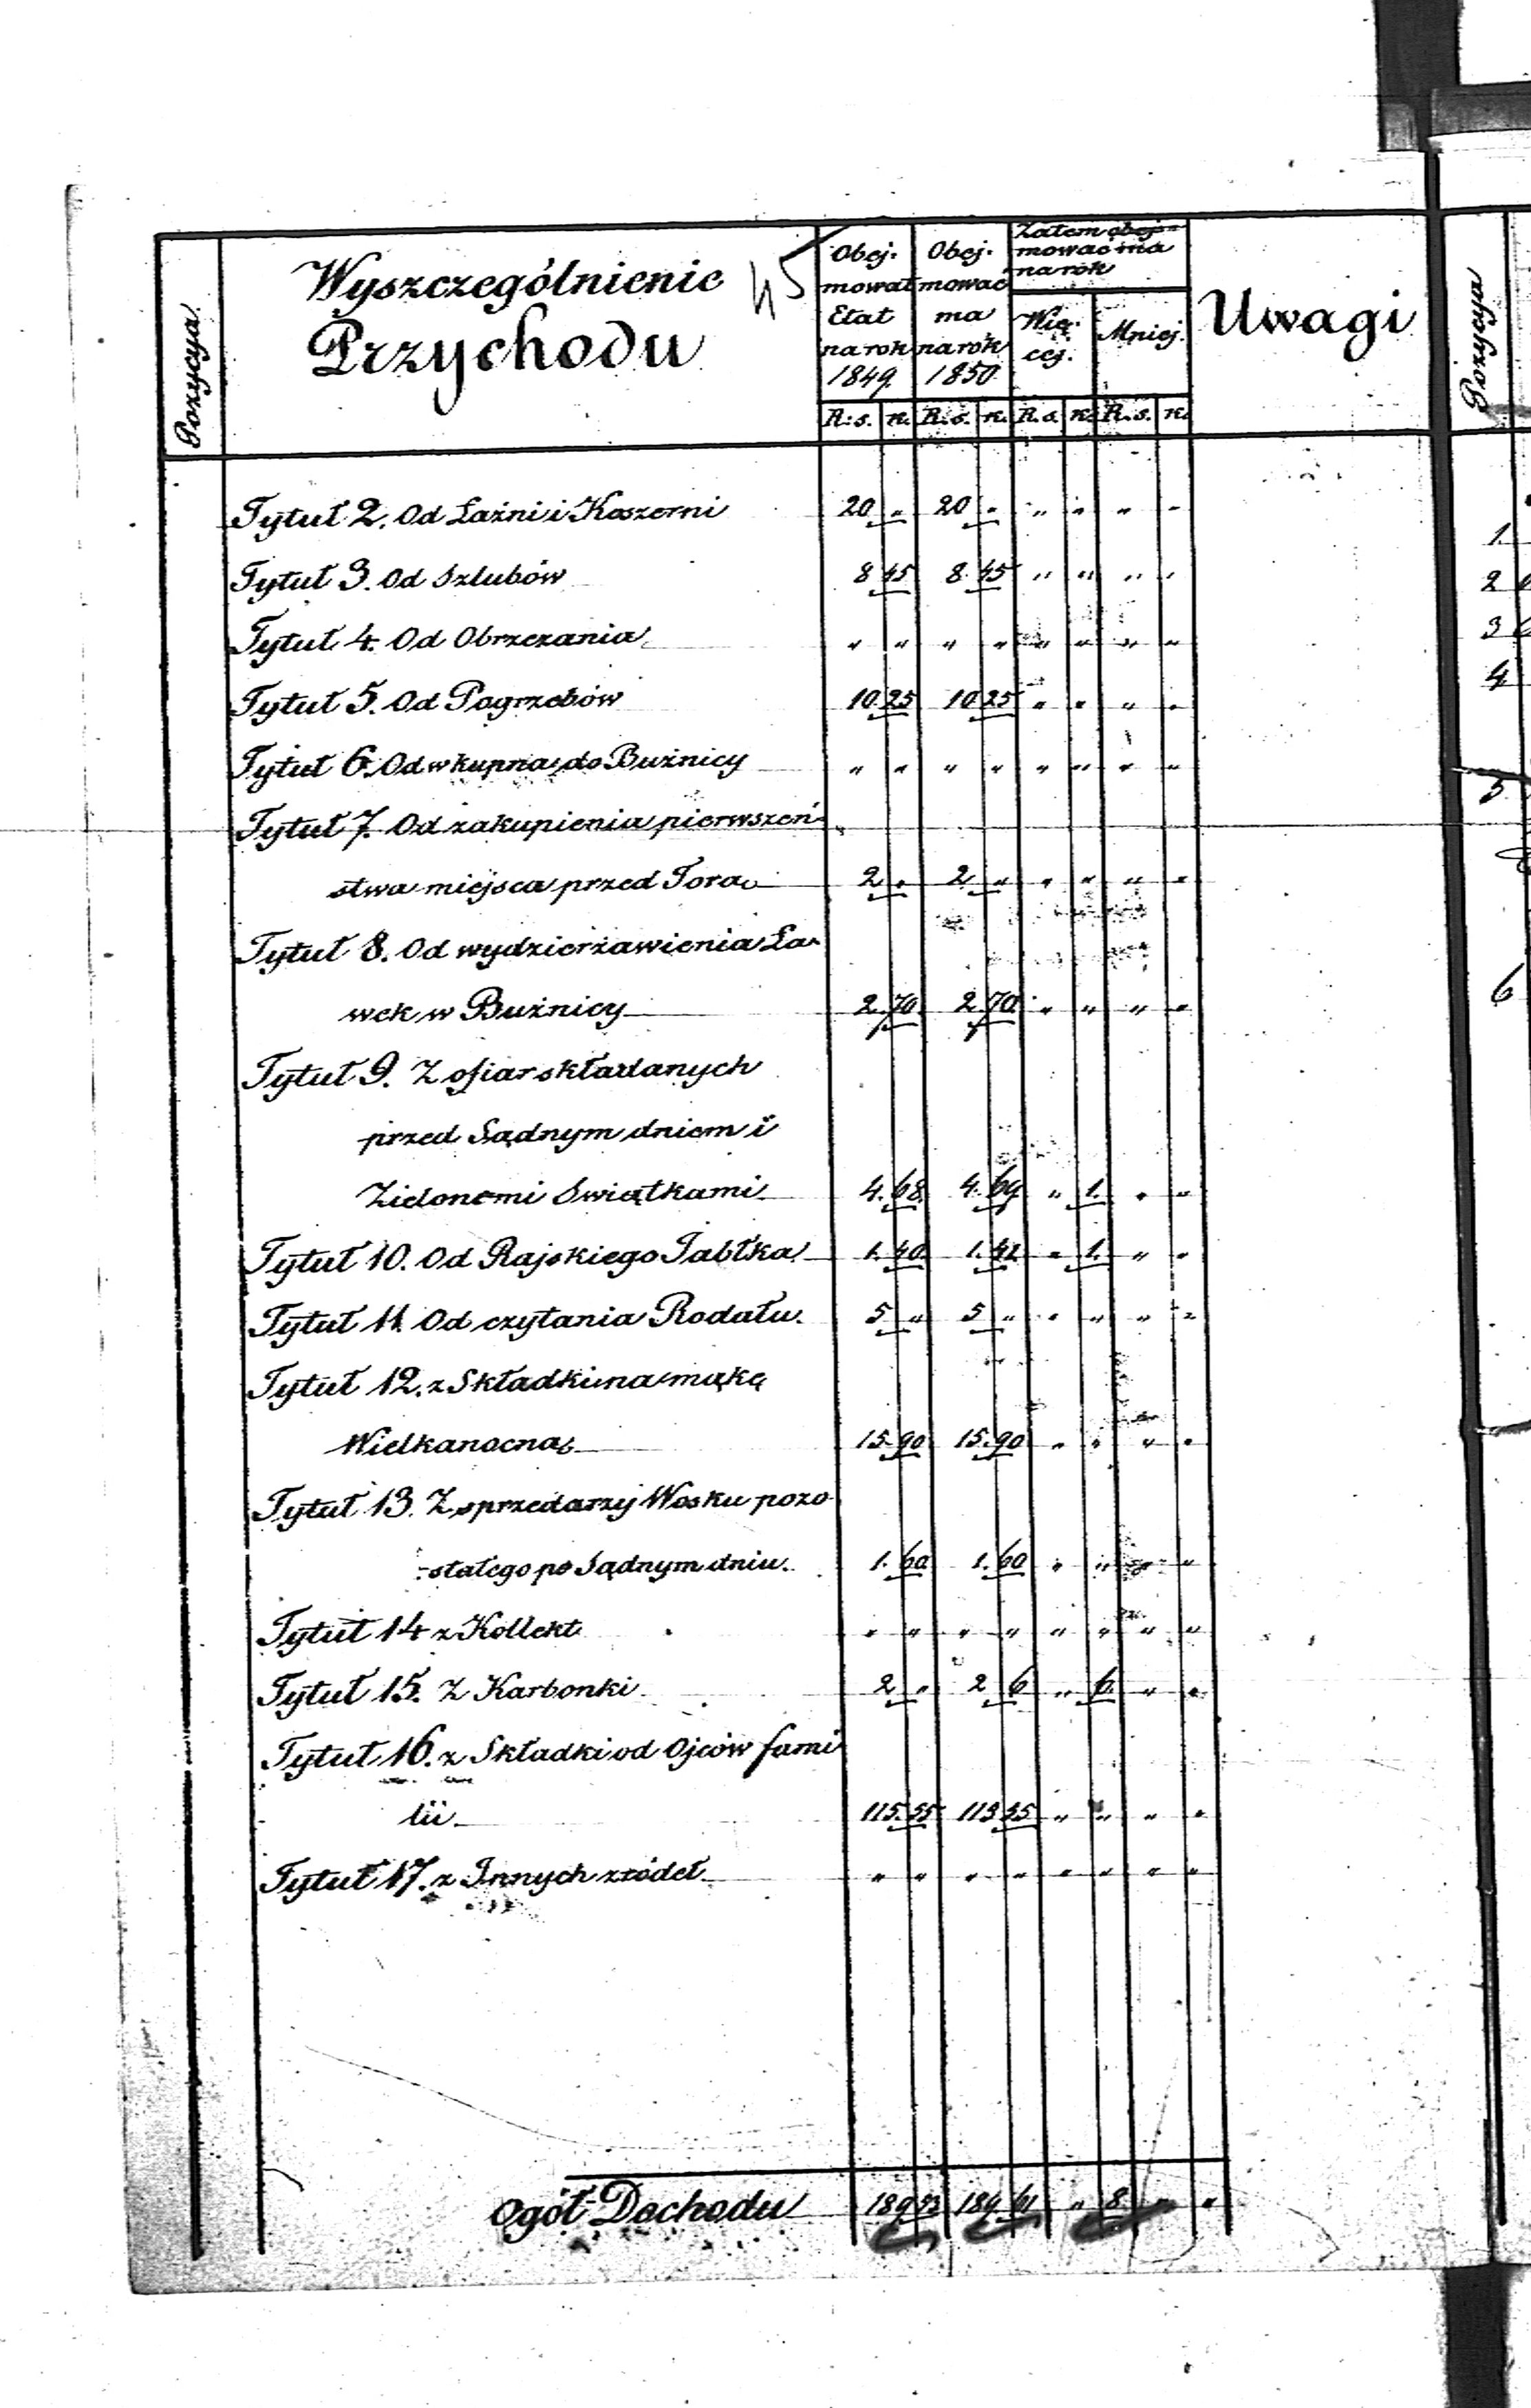 Pozycya
Wyszczególnienie
Przychodu
45
Obej-
mował
Etat
na rok
1849.
Obej-
mować
ma
na rok
1850.
Zatem obej-
mować ma
na rok
Wię-
cej.
Mniej.
Uwagi
R: s. k. R. s. k. R. s. k. R. s. k.
Tytuł 2. Od Łaźni i Koszerni 20 „ 20 „ „ „ „ „
Tytuł 3. Od Szlubów 8 45 8. 45 „ „ „ „
Tytuł 4. Od Obrzezania „ „ „ „ „ „ „ „
Tytuł 5. Od Pogrzebów 10. 25 10 25 „ „ „ „
Tytuł 6. Od wkupna do Bużnicy „ „ „ „ „ „ „ „
Tytuł 7. Od zakupienia pierwszeń-
stwa miejsca przed Torą 2 „ 2 „ „ „ „ „
Tytuł 8. Od wydzierżawienia Ła-
wek w Bużnicy 2. 70. 2 70. „ „ „ „
Tytuł 9. Z ofiar składanych
przed Sądnym dniem i
Zielonemi Swiątkami 4. 68. 4. 69 „ 1. „ „
Tytuł 10. Od Rajskiego Jabłka 1. 40. 1. 41 „ 1. „ „
Tytuł 11. Od czytania Rodału. 5 „ 5 „ „ „ „ „
Tytuł 12. z Składki na mąkę
Wielkanocną 15. 90 15. 90 „ „ „ „
Tytuł 13. Z sprzedarzy Wosku pozo-
stałego po Sądnym dniu. 1. 60 1. 60 „ „ „ „
Tytuł 14 z Kollekt „ „ „ „ „ „ „ „
Tytuł 15. Z Karbonki. 2 „ 2 6 „ 6. „ „
Tytuł 16. z Składki od Ojców fami-
lii 115. 55 „ „ „ „
Tytuł 17. z Innych zródeł „ „ „ „ „ „ „ „
Ogół Dochodu 189 53 189. 61 „ 8. „ „
Pozycya
1.
2
3
4
5
6